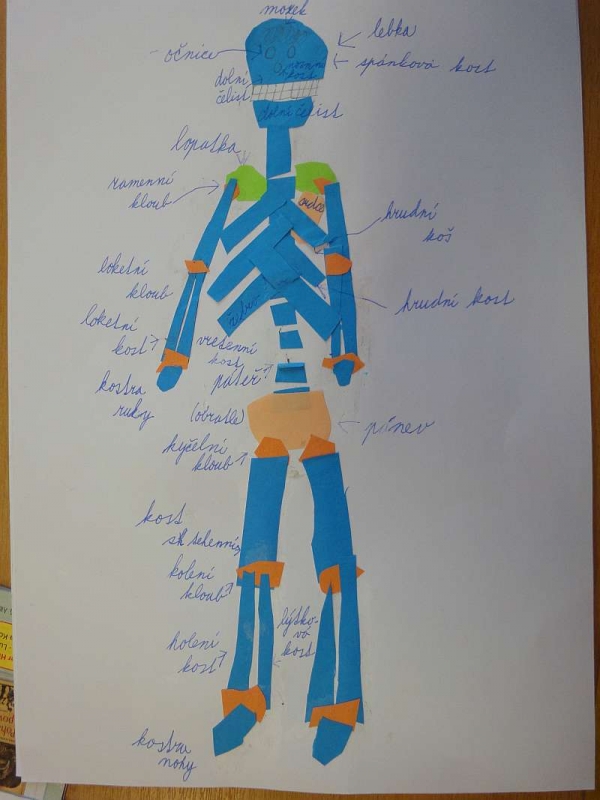 mozek
lebka
očnice
spánková kost
dolní
čelist
dolní čelist
lopatka
ramenní
kloub
srdce
hrudní
koš
loketní
kloub
hrudní kost
žebro
loketní
kost
vřetenní
kost
páteř
kostra
ruky
(obratle)
pánev
kyčelní
kloub
kost
stehenní
kolení
kloub
lýtko-
vá
kost
holení
kost
kostra
nohy